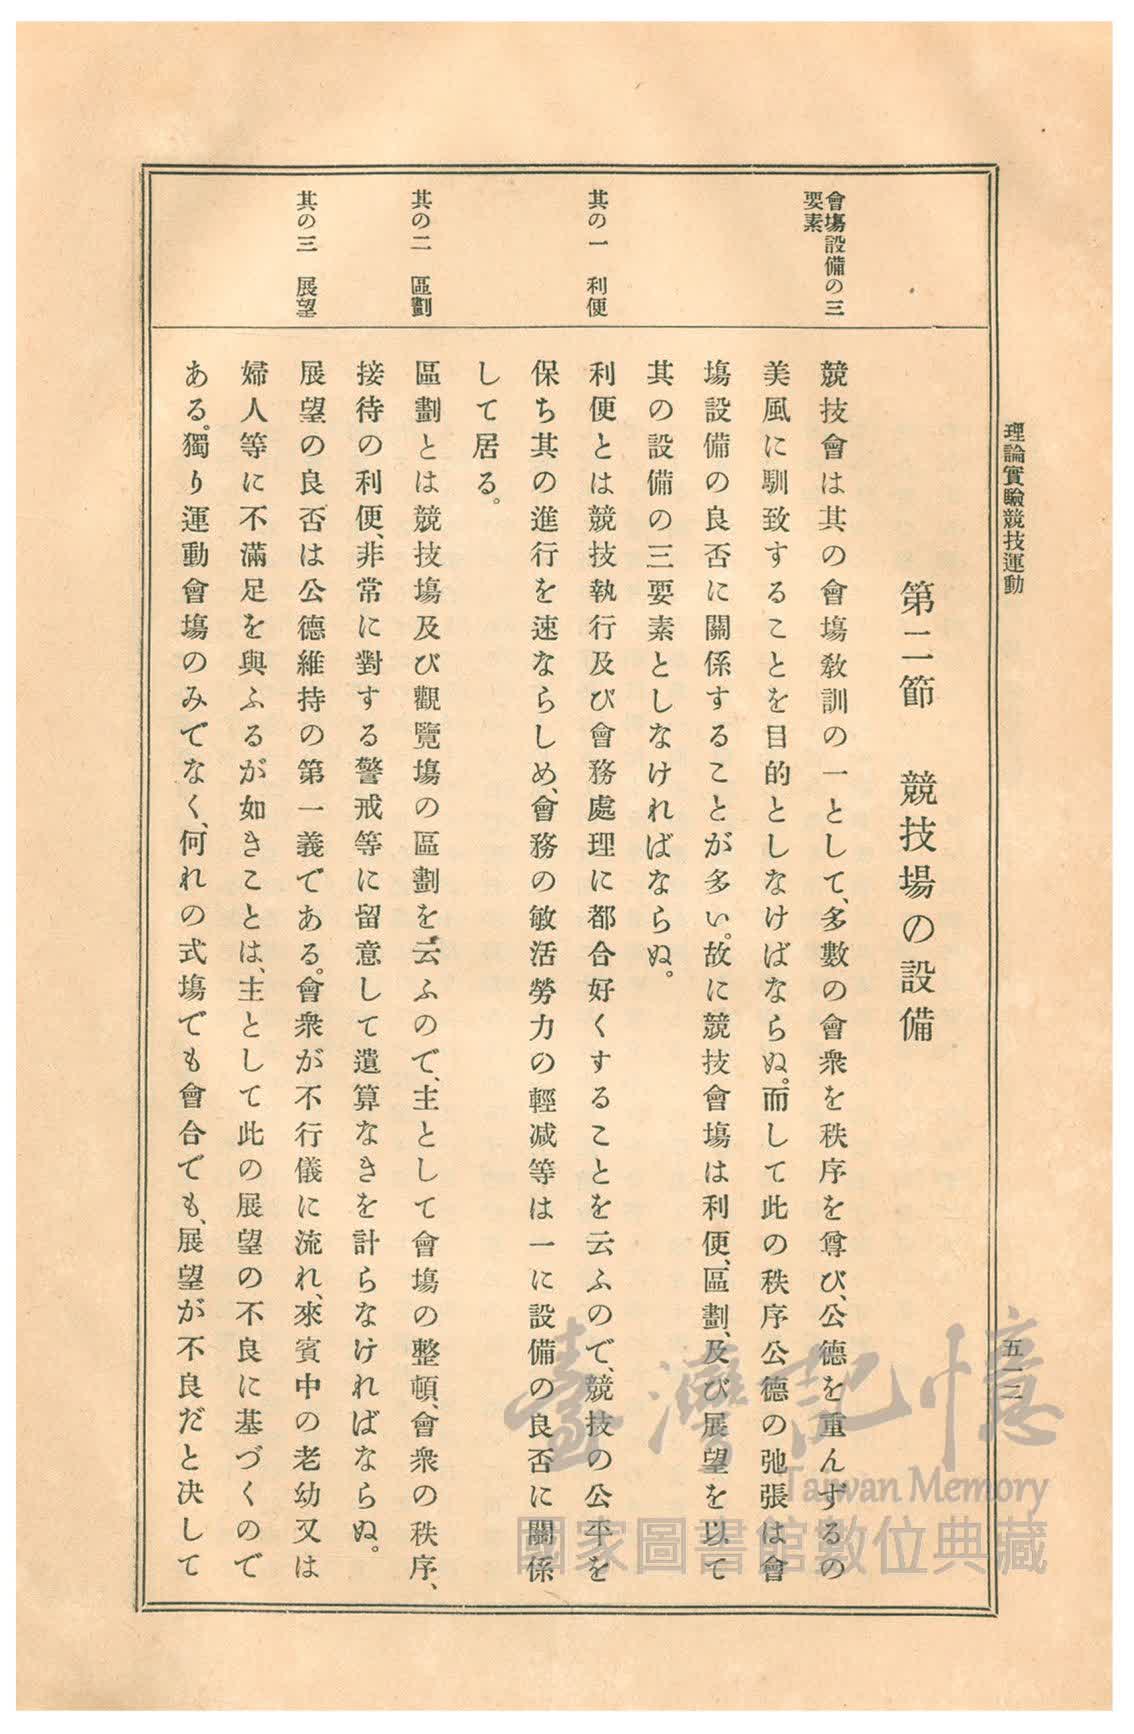 理論實驗競技運動
五一二
第二節　競技場の設備
會塲設備の三
要素
競技會は其の會塲敎訓の一として、多數の會衆を秩序を尊び、公德を重んずるの
美風に馴致することを目的としなけばならぬ。而して此の秩序公德の弛張は會
塲設備の良否に關係することが多い。故に競技會塲は利便、區劃、及び展望を以て
其の設備の三要素としなければならぬ。
其の一　利便
利便とは競技執行及び會務處理に都合好くすることを云ふので、競技の公平を
保ち其の進行を速ならしめ、會務の敏活勞力の輕減等は一に設備の良否に關係
して居る。
其の二　區劃
區劃とは競技塲及び觀覽塲の區劃を云ふので、主として會塲の整頓、會衆の秩序、
接待の利便、非常に對する警戒等に留意して遺算なきを計らなければならぬ。
其の三　展望
展望の良否は公德維持の第一義である。會衆が不行儀に流れ、來賓中の老幼又は
婦人等に不滿足を與ふるが如きことは、主として此の展望の不良に基づくので
ある。獨り運動會塲のみでなく、何れの式塲でも會合でも、展望が不良だと决して
臺灣記憶
Taiwan Memory
國家圖書館數位典藏